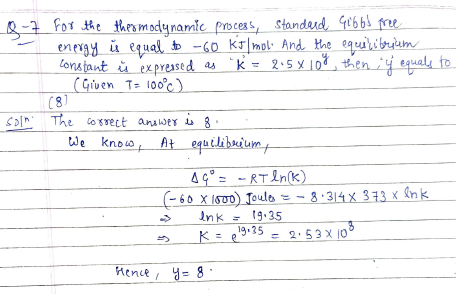 Q-7 For the thermodynamic process, standard Gibbs free
energy is equal to -60 KJ/mol. And the equilibrium
constant is expressed as K = 2.5 x 10^y, then 'y' equals to
(Given T= 100°c)
(8)
Soln: The correct answer is 8.
We know, At equilibrium,
ΔG° = -RT ln(K)
(-60 x 1000) Joules = - 8.314 x 373 x lnk
⇒ lnk = 19.35
⇒ K = e^19.35 = 2.53 x 10^8
Hence, y = 8.